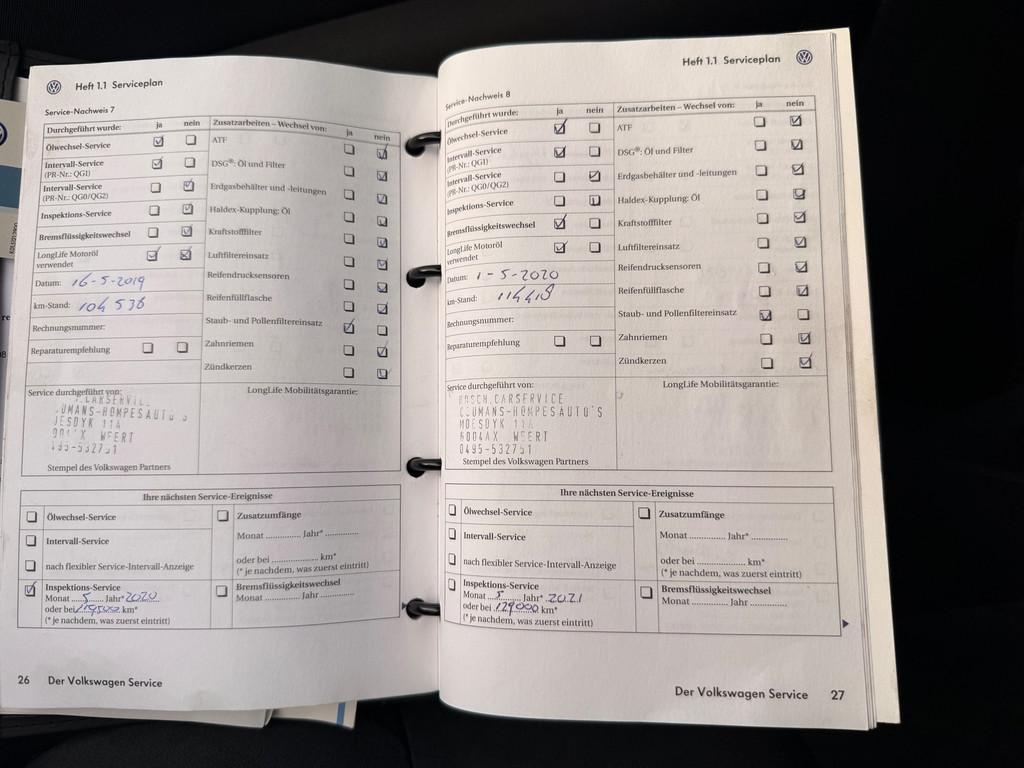 Heft 1.1 Serviceplan
Service-Nachweis 7
Durchgeführt wurde: ja nein Zusatzarbeiten – Wechsel von: ja nein
Ölwechsel-Service ATF
Intervall-Service
(PR-Nr.: QG1) DSG®: Öl und Filter
Intervall-Service
(PR-Nr.: QG0/QG2) Erdgasbehälter und -leitungen
Inspektions-Service Haldex-Kupplung: Öl
Bremsflüssigkeitswechsel Kraftstofffilter
LongLife Motoröl
verwendet Luftfiltereinsatz
Datum: 16-5-2019 Reifendrucksensoren
km-Stand: 104 538 Reifenfüllflasche
Rechnungsnummer: Staub- und Pollenfiltereinsatz
Reparaturempfehlung Zahnriemen
Zündkerzen
Service durchgeführt von: LongLife Mobilitätsgarantie:
WEERT
Stempel des Volkswagen Partners
Ihre nächsten Service-Ereignisse
Ölwechsel-Service Zusatzumfänge
Intervall-Service Monat ............. Jahr* .............
nach flexibler Service-Intervall-Anzeige oder bei ............. km*
(* je nachdem, was zuerst eintritt)
Inspektions-Service Bremsflüssigkeitswechsel
Monat 5 Jahr* 2020 Monat ............. Jahr .............
oder bei km*
(* je nachdem, was zuerst eintritt)
26 Der Volkswagen Service
Heft 1.1 Serviceplan
Service-Nachweis 8
Durchgeführt wurde: ja nein Zusatzarbeiten – Wechsel von: ja nein
Ölwechsel-Service ATF
Intervall-Service
(PR-Nr.: QG1) DSG®: Öl und Filter
Intervall-Service
(PR-Nr.: QG0/QG2) Erdgasbehälter und -leitungen
Inspektions-Service Haldex-Kupplung: Öl
Bremsflüssigkeitswechsel Kraftstofffilter
LongLife Motoröl
verwendet Luftfiltereinsatz
Datum: 1-5-2020 Reifendrucksensoren
km-Stand: 114418 Reifenfüllflasche
Rechnungsnummer: Staub- und Pollenfiltereinsatz
Reparaturempfehlung Zahnriemen
Zündkerzen
Service durchgeführt von: LongLife Mobilitätsgarantie:
BOSCH CARSERVICE
COUMANS-HOMPESAUTO'S
MOESDYK 11A
6004AX WEERT
0495-532751
Stempel des Volkswagen Partners
Ihre nächsten Service-Ereignisse
Ölwechsel-Service Zusatzumfänge
Intervall-Service Monat ............. Jahr* .............
nach flexibler Service-Intervall-Anzeige oder bei ............. km*
(* je nachdem, was zuerst eintritt)
Inspektions-Service Bremsflüssigkeitswechsel
Monat 5 Jahr* 2021 Monat ............. Jahr .............
oder bei 129000 km*
(* je nachdem, was zuerst eintritt)
Der Volkswagen Service 27